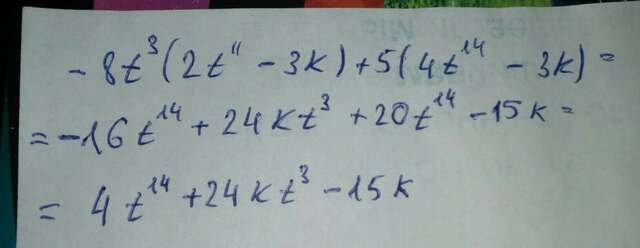 - 8t³(2t¹¹ - 3k) + 5(4t¹⁴ - 3k) =
= -16t¹⁴ + 24kt³ + 20t¹⁴ - 15k =
= 4t¹⁴ + 24kt³ - 15k